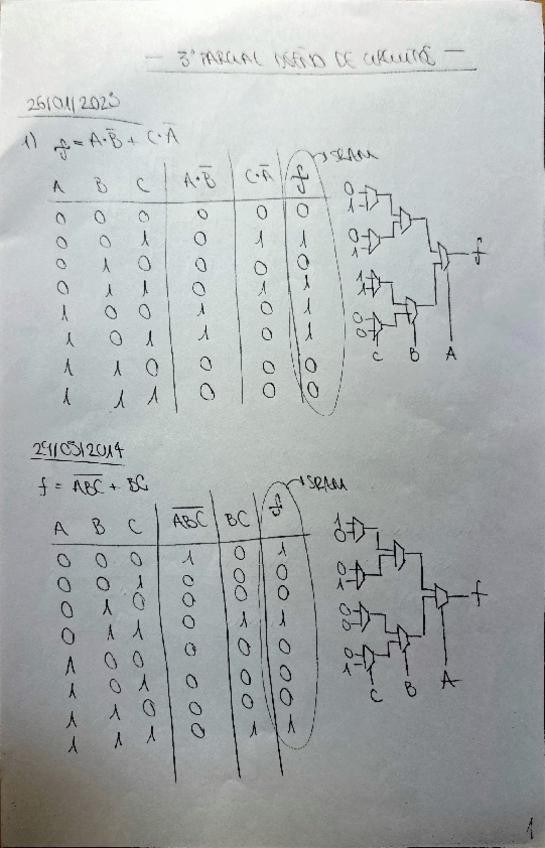 — 3º PARCIAL DE CIRCUITS —
26/01/2023
1) f = A·B̅ + C·A̅
A B C A·B̅ C·A̅ f → SRAM
0 0 0 0 0 0
0 0 1 0 1 1
0 1 0 0 0 0
0 1 1 0 1 1
1 0 0 1 0 1
1 0 1 1 0 1
1 1 0 0 0 0
1 1 1 0 0 0
0
1
0
1
1
1
0
0
C B A
f
29/05/2014
f = A̅B̅C̅ + BC
A B C A̅B̅C̅ BC f → SRAM
0 0 0 1 0 1
0 0 1 0 0 0
0 1 0 0 0 0
0 1 1 0 1 1
1 0 0 0 0 0
1 0 1 0 0 0
1 1 0 0 0 0
1 1 1 0 1 1
1
0
0
1
0
0
0
1
C B A
f
1